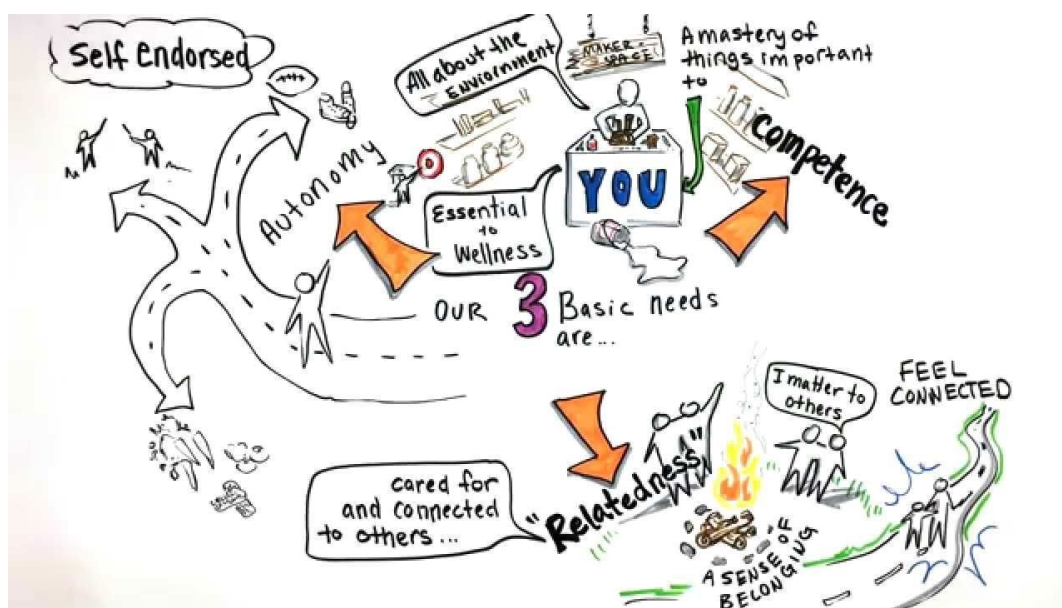 Self Endorsed
Autonomy
All about the
Enviornment
MAKER
SPACE
A mastery of
things important
to
Competence
YOU
Essential
to
Wellness
OUR 3 Basic needs
are...
cared for
and connected
to others...
"Relatedness"
I matter to
others
FEEL
CONNECTED
A SENSE OF
BELONGING